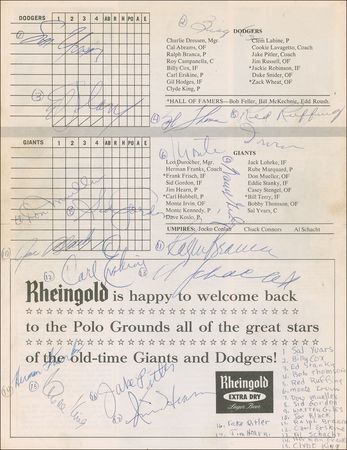 DODGERS 1 2 3 4 AB R H PO A E
DODGERS
Charlie Dressen, Mgr.
Cal Abrams, OF
Ralph Branca, P
Roy Campanella, C
Billy Cox, IF
Carl Erskine, P
Gil Hodges, IF
Clyde King, P
Clem Labine, P
Cookie Lavagetto, Coach
Jake Pitler, Coach
Jim Russell, OF
*Jackie Robinson, IF
Duke Snider, OF
*Zack Wheat, OF
*HALL OF FAMERS—Bob Feller, Bill McKechnie, Edd Roush.
Red Ruffing
Monte Irvin
GIANTS 1 2 3 4 AB R H PO A E
GIANTS
Leo Durocher, Mgr.
Herman Franks, Coach
*Frank Frisch, IF
Sid Gordon, IF
Jim Hearn, P
*Carl Hubbell, P
Monte Irvin, OF
Monte Kennedy, P
Dave Koslo, P
Jack Lohrke, IF
Rube Marquard, P
Don Mueller, OF
Eddie Stanky, IF
Casey Stengel, OF
*Bill Terry, IF
Bobby Thomson, OF
Sal Yvars, C
UMPIRES: Jocko Conlan Chuck Connors Al Schacht
Don Mueller
Sid Gordon
Joe Black
Ralph Branca
Carl Erskine
Al Schacht
Rheingold is happy to welcome back
to the Polo Grounds all of the great stars
of the old-time Giants and Dodgers!
Herman Franks
Clyde King
Jake Pitler
Jim Hearn
Rheingold
EXTRA DRY
Lager Beer
1. Sal Yvars
2. Billy Cox
3. Ed Stanky
4. Bob Thomson
5. Red Ruffing
6. Monte Irvin
7. Don Mueller
8. Sid Gordon
9. Warren Giles
10. Joe Black
11. Ralph Branca
12. Carl Erskine
13. Al Schacht
14. Herman Franks
15. Clyde King
16. Jake Pitler
17. Jim Hearn